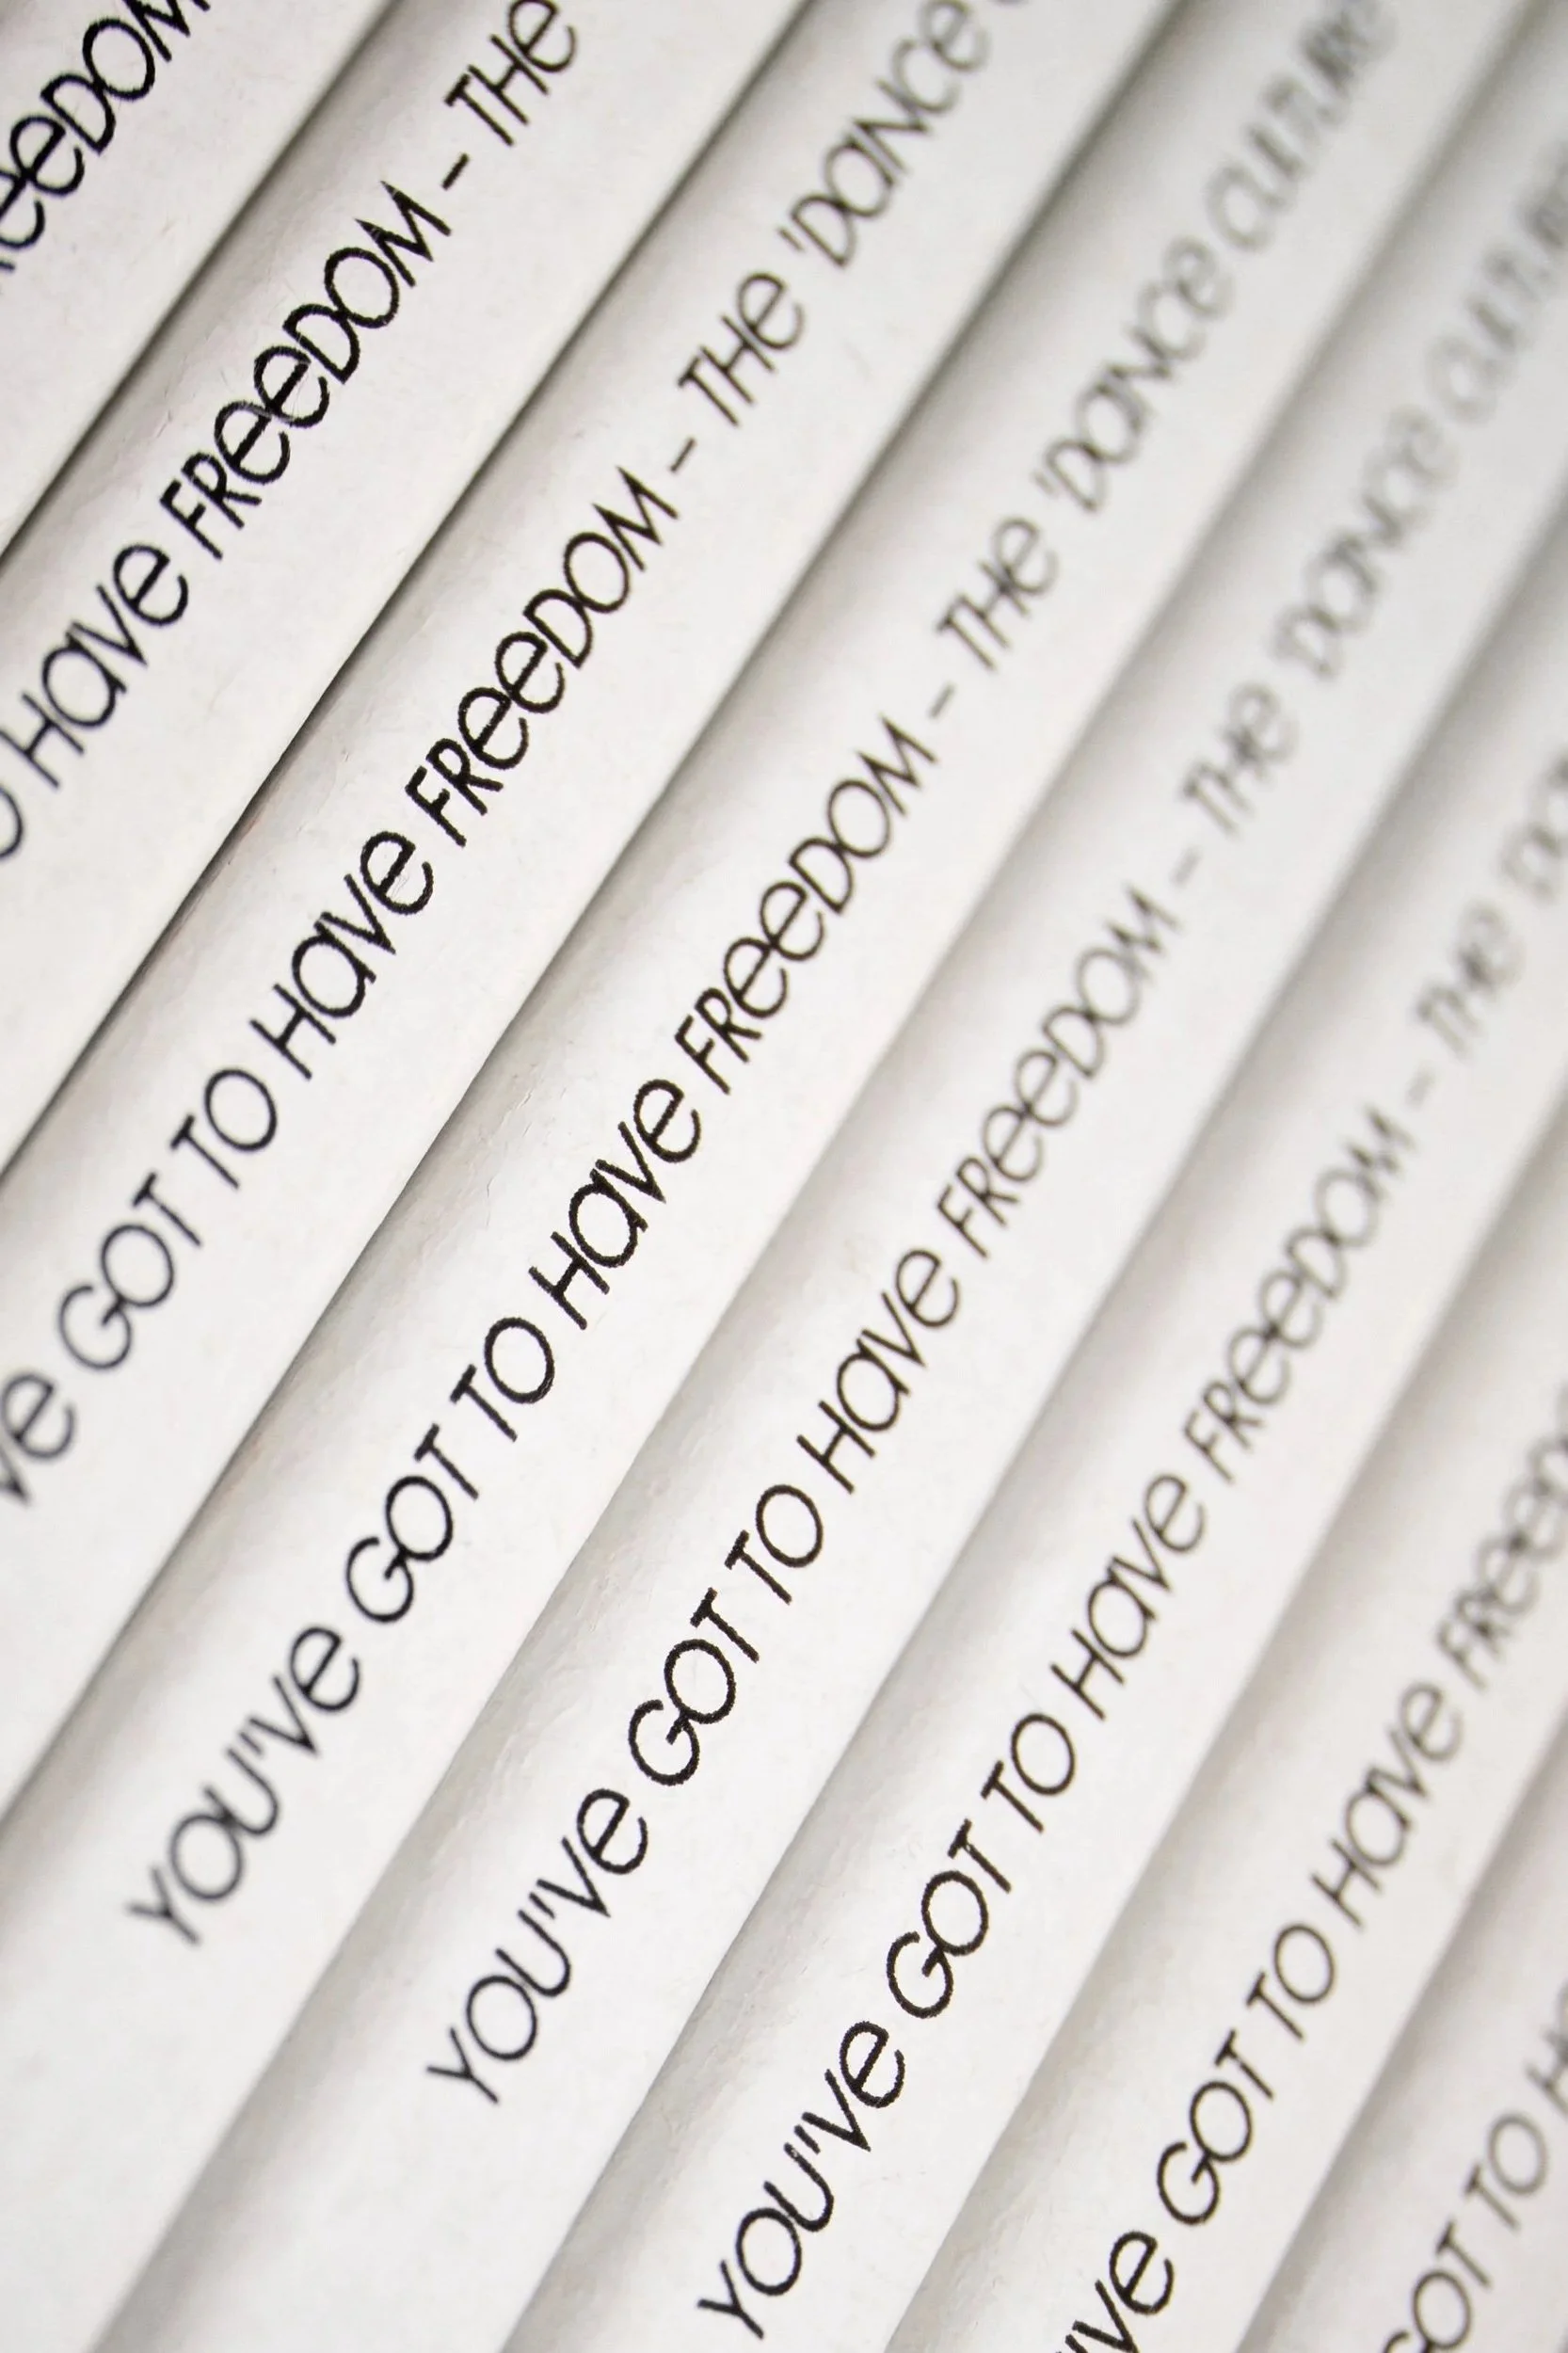 EEDOM
HAVE FREEDOM - THE
VE GOT TO HAVE FREEDOM - THE 'DANCE
YOU'VE GOT TO HAVE FREEDOM - THE 'DANCE CULTURE
YOU'VE GOT TO HAVE FREEDOM - THE 'DANCE CULTURE
YOU'VE GOT TO HAVE FREEDOM - THE
'VE GOT TO HAVE FREED
GOT TO H